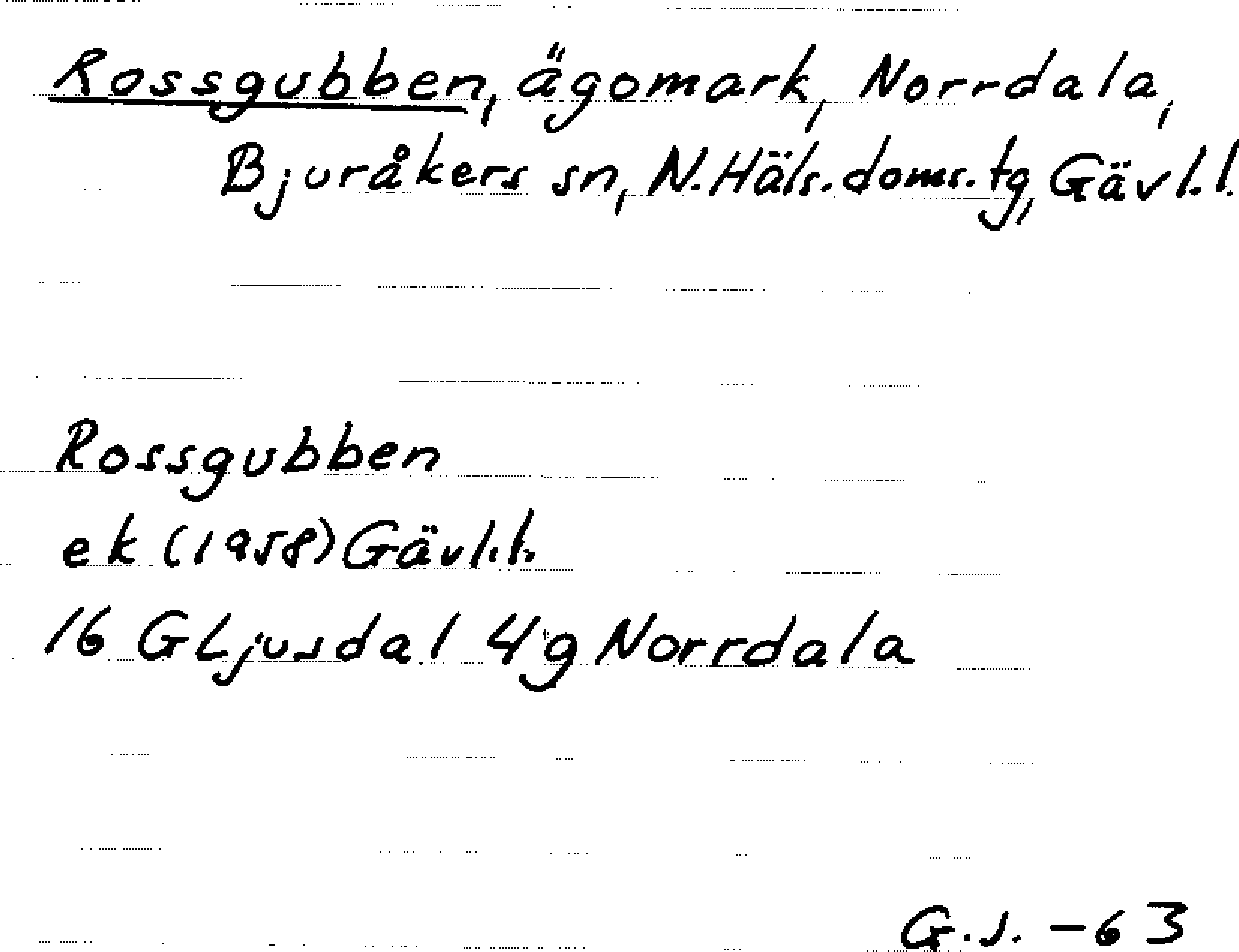 Rossgubben, ägomark, Norrdala,
Bjuråkers sn, N.Häls.doms.tg, Gävl.l.
Rossgubben
ek (1958) Gävl.l.
16 G Ljusdal 4 g Norrdala
G.J. -63